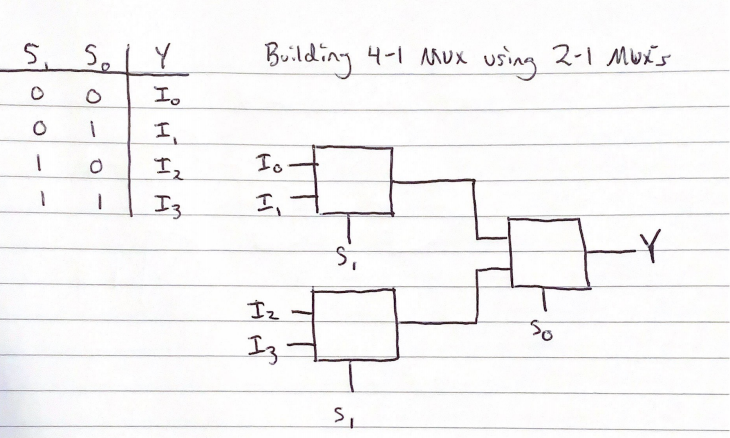 S₁ S₀ Y
0 0 I₀
0 1 I₁
1 0 I₂
1 1 I₃
Building 4-1 Mux using 2-1 Mux's
I₀
I₁
S₁
I₂
I₃
S₁
S₀
Y